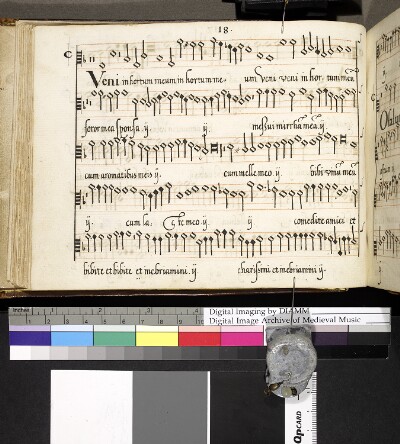 ·18·
C
Veni in hortum meum in hortum me- um Veni veni in hor- tum meū
soror mea sponsa .ij. ij messui mirrhā meā .ij.
cum aromatibus meis .ij. cum melle meo .ij. bibi vinū meū
ij. cum la- cte meo .ij. ij comedite amici et
bibite et bibite et inebriamini .ij charissimi et inebriamini ij.
Inches
Digital Imaging by DIAMM
Digital Image Archive of Medieval Music
QPCARD